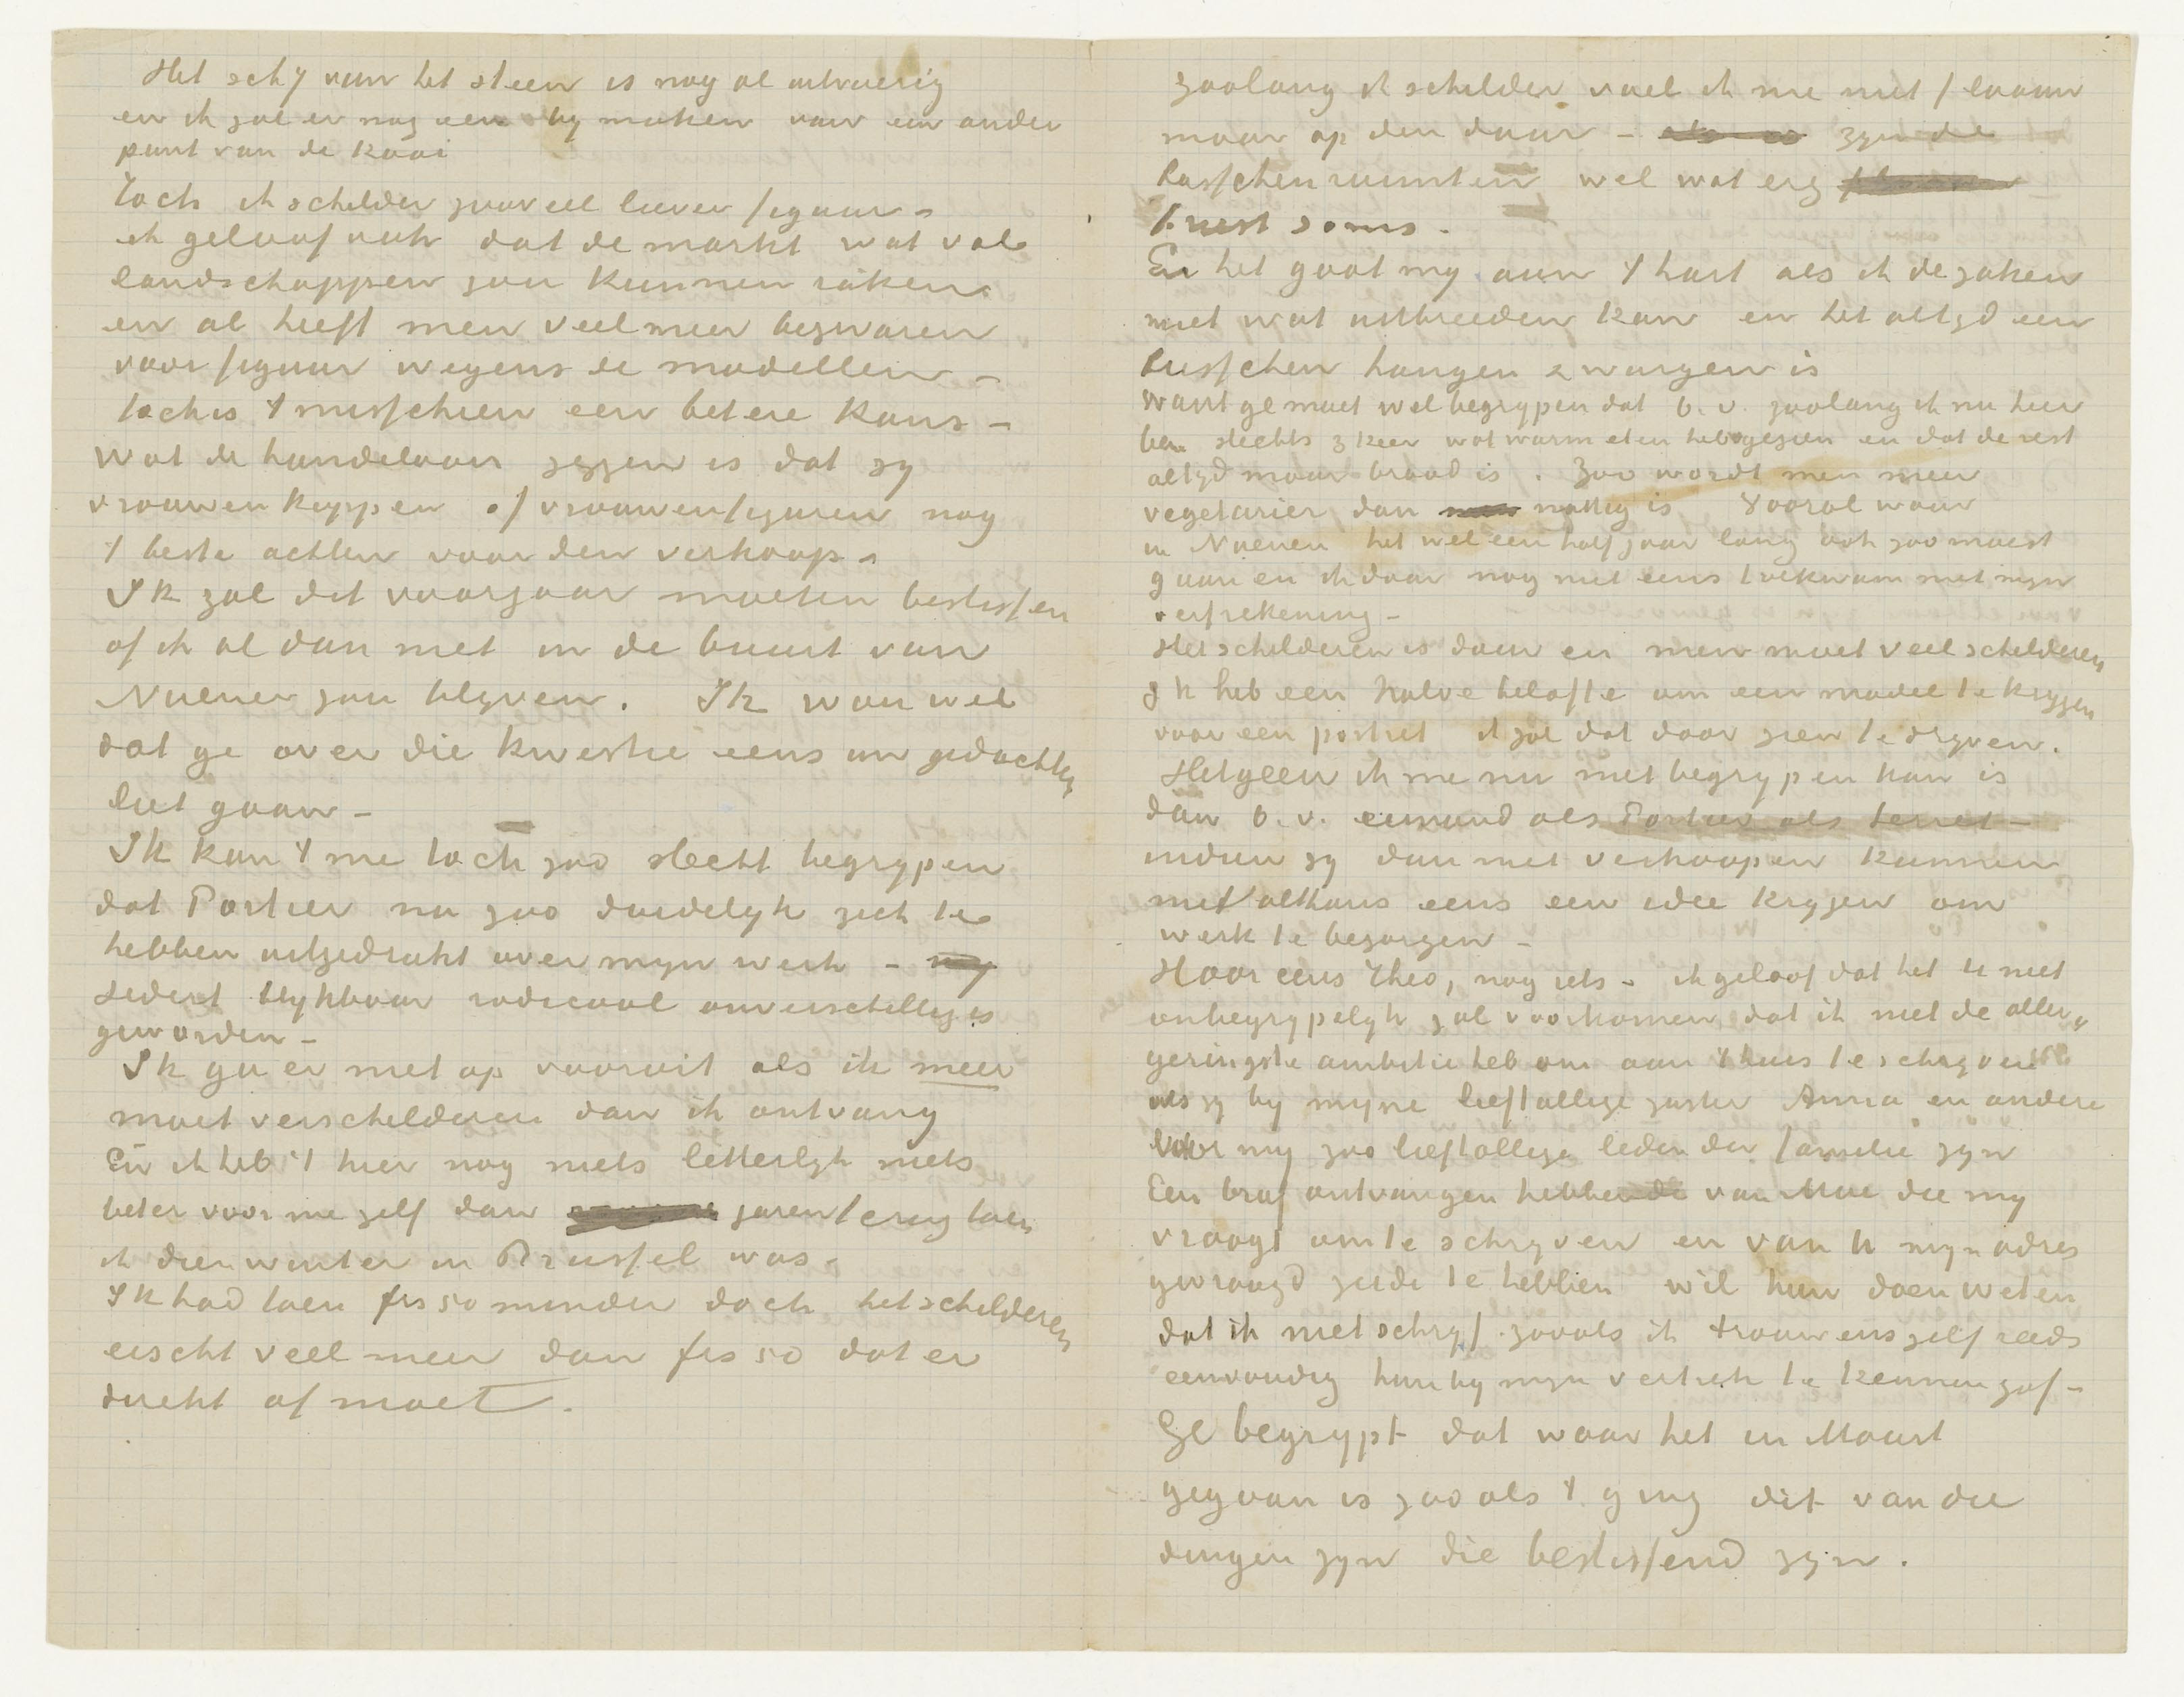 Het schij van het steen is nog al uitvoerig
en ik zal er nog een by maken van een ander
punt van de kaai
Toch ik schilder zooveel liever figuur –
ik geloof ook dat de markt wat vol
landschappen zou kunnen raken.
en al heeft men veel meer bezwaren
voor figuur wegens de modellen –
toch is 't misschien een betere kans –
Wat de handelaars zeggen is dat zy
vrouwenkoppen of vrouwenfiguren nog
't beste achten voor den verkoop –
Ik zal dit voorjaar moeten beslissen
of ik al dan niet in de buurt van
Nuenen zou blyven. Ik wou wel
dat ge over die kwestie eens uw gedachten
liet gaan –
Ik kan 't me toch zoo slecht begrypen
dat Portier na zoo duidelyk zich te
hebben uitgedrukt over myn werk –
sedert blykbaar radicaal onverschillig is
geworden –
Ik ga er niet op vooruit als ik meer
moet verschilderen dan ik ontvang
En ik heb 't hier nog niets letterlyk niets
beter voor me zelf dan jaren terug toen
ik dien winter in Brussel was –
Ik had toen frs 50 minder doch het schilderen
eischt veel meer dan frs 50 dat er
direkt af moet.
zoolang ik schilder voel ik me niet flaauw
maar op den duur – zyn de
tusschenruimten wel wat erg
triest soms.
En het gaat my aan 't hart als ik de zaken
niet wat uitbreiden kan en het altyd een
tusschen hangen & wurgen is
want ge moet wel begrypen dat b.v. zoolang ik nu hier
ben slechts 3 keer wat warm eten heb gegeten en dat de rest
altyd maar brood is. Zoo wordt men meer
vegetarier dan nuttig is Vooral waar
in Nuenen het wel een half jaar lang ook zoo moest
gaan en ik daar nog niet eens toekwam met myn
verfrekening –
Het schilderen is duur en men moet veel schilderen
Ik heb een halve belofte om een model te krygen
voor een portret ik zal dat door zien te dryven.
Hetgeen ik me nu niet begrypen kan is
dan b.v. iemand als Portier als Serret –
indien zy dan niet verkoopen kunnen
niet althans eens een idee krygen om
werk te bezorgen –
Hoor eens Theo, nog iets – ik geloof dat het U niet
onbegrypelyk zal voorkomen dat ik niet de aller
geringste ambitie heb om aan 't huis te schryven
als zy by myne lieftallige zuster Anna en andere
voor my zoo lieftallige leden der familie zyn
Een brief ontvangen hebbende van Moe die my
vraagt om te schryven en van U myn adres
gevraagd zeide te hebben wil hun doen weten
dat ik niet schryf zooals ik trouwens zelf reeds
eenvoudig hun by myn vertrek te kennen gaf –
Ge begrypt dat waar het in Maart
gegaan is zooals 't ging dit van die
dingen zyn die beslissend zyn.